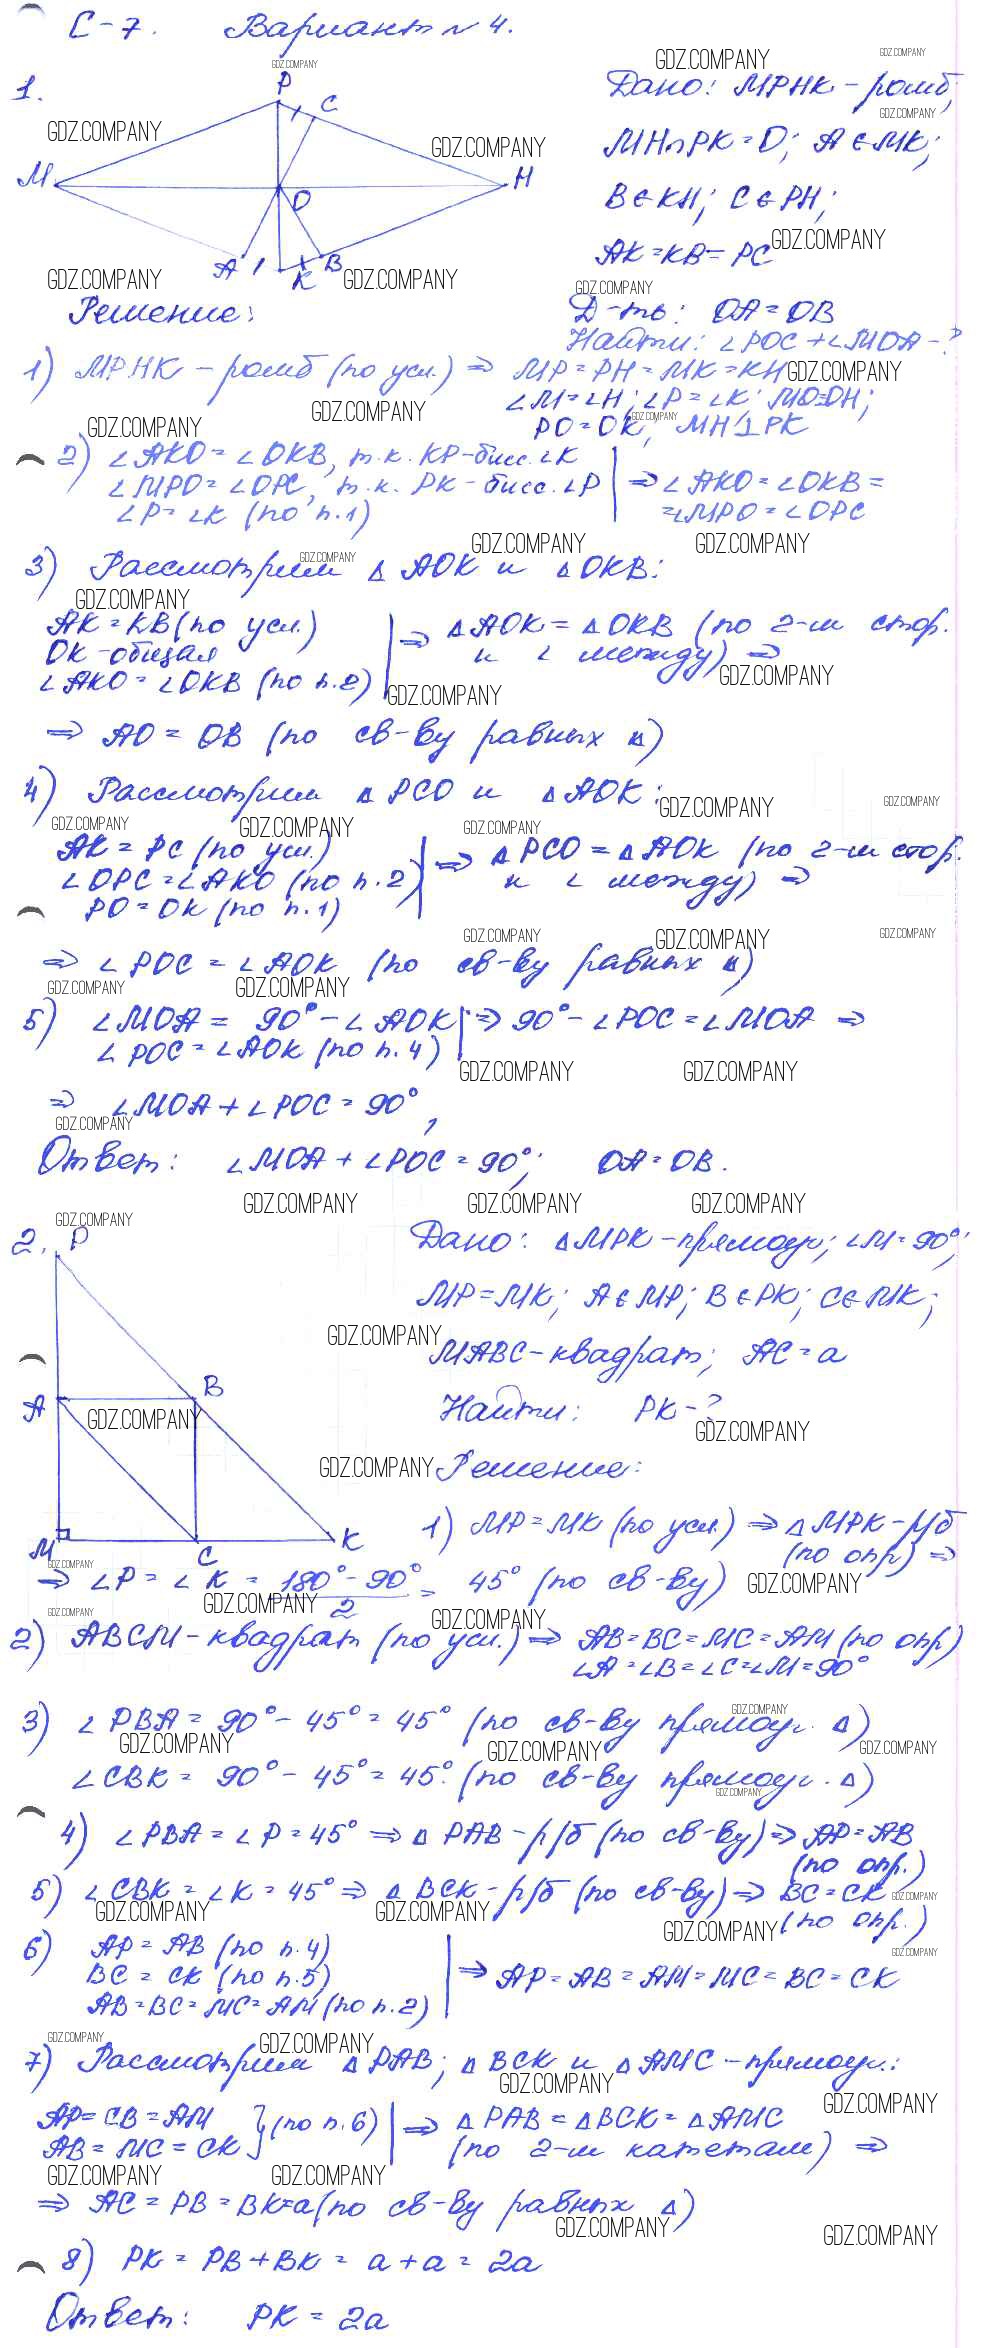 С-7. Вариант № 4.
1.
P
C
M
H
O
A
K
B
Дано: MPHK - ромб;
MH∩PK = O; A ∈ MK;
B ∈ KH; C ∈ PH;
AK = KB = PC
Д-ть: OA = OB
Найти: ∠POC + ∠MOA - ?
Решение:
1) MPHK - ромб (по усл.) ⇒ MP = PH = MK = KH
∠M = ∠H; ∠P = ∠K; MO=OH;
PO = OK; MH⊥PK
2) ∠AKO = ∠OKB, т.к. KP-бисс. ∠K
∠MPO = ∠OPC, т.к. PK - бисс. ∠P
∠P = ∠K (по п.1)
⇒ ∠AKO = ∠OKB =
= ∠MPO = ∠OPC
3) Рассмотрим △ AOK и △ OKB:
AK = KB (по усл.)
OK - общая
∠AKO = ∠OKB (по п.2)
⇒ △AOK = △OKB (по 2-м стор.
и ∠ между) ⇒
⇒ AO = OB (по св-ву равных △)
4) Рассмотрим △ PCO и △AOK:
AK = PC (по усл.)
∠OPC = ∠AKO (по п.2)
PO = OK (по п.1)
⇒ △PCO = △AOK (по 2-м стор.
и ∠ между) ⇒
⇒ ∠POC = ∠AOK (по св-ву равных △)
5) ∠MOA = 90° - ∠AOK
∠POC = ∠AOK (по п.4)
⇒ 90° - ∠POC = ∠MOA ⇒
⇒ ∠MOA + ∠POC = 90°,
Ответ: ∠MOA + ∠POC = 90°; OA = OB.
2.
P
A
B
M
C
K
Дано: △MPK - прямоуг; ∠M = 90°;
MP = MK; A ∈ MP; B ∈ PK; C ∈ MK;
MABC - квадрат; AC = a
Найти: PK - ?
Решение:
1) MP = MK (по усл.) ⇒ △MPK - р/б
(по опр) ⇒
⇒ ∠P = ∠K = 180° - 90° / 2 = 45° (по св-ву)
2) ABCM - квадрат (по усл.) ⇒ AB = BC = MC = AM (по опр)
∠A = ∠B = ∠C = ∠M = 90°
3) ∠PBA = 90° - 45° = 45° (по св-ву прямоуг. △)
∠CBK = 90° - 45° = 45°. (по св-ву прямоуг. △)
4) ∠PBA = ∠P = 45° ⇒ △ PAB - р/б (по св-ву) ⇒ AP = AB
(по опр.)
5) ∠CBK = ∠K = 45° ⇒ △ BCK - р/б (по св-ву) ⇒ BC = CK
(по опр.)
6) AP = AB (по п.4)
BC = CK (по п.5)
AB = BC = MC = AM (по п.2)
⇒ AP = AB = AM = MC = BC = CK
7) Рассмотрим △ PAB; △ BCK и △ AMC - прямоуг.:
AP = CB = AM
AB = MC = CK
} (по п.6)
⇒ △ PAB = △BCK = △AMC
(по 2-м катетам) ⇒
⇒ AC = PB = BK = a (по св-ву равных △)
8) PK = PB + BK = a + a = 2a
Ответ: PK = 2a
GDZ.COMPANY